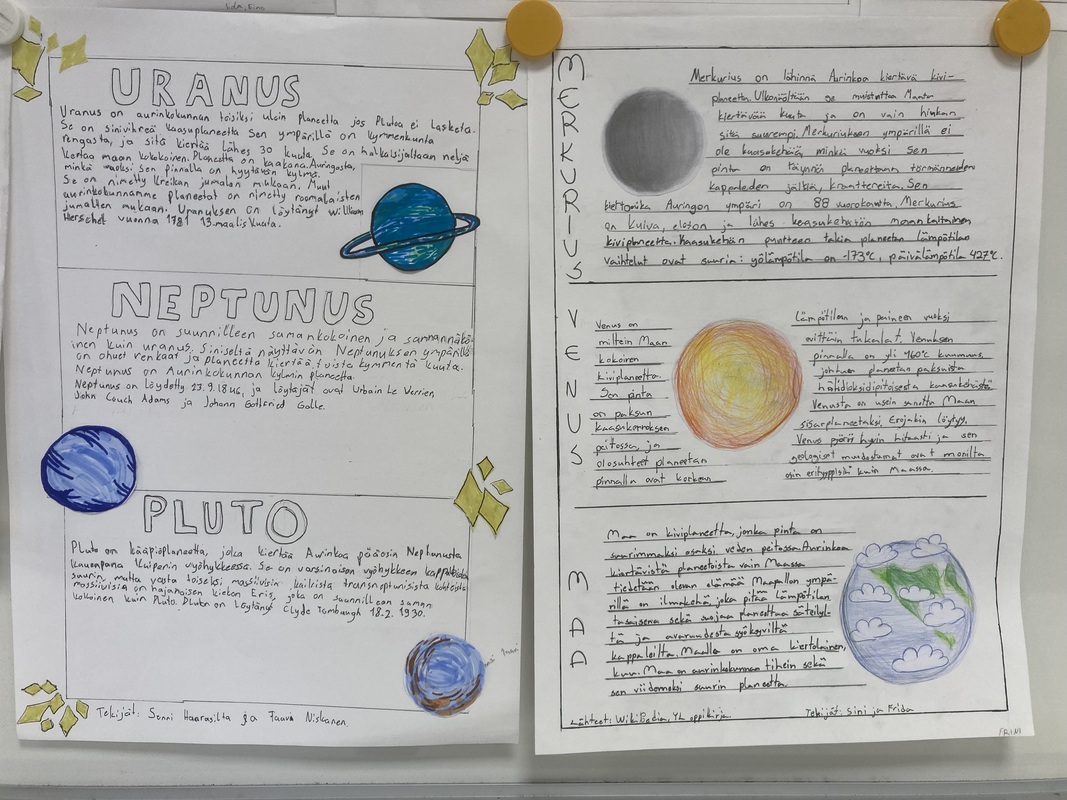 URANUS
Uranus on aurinkokunnan toisiksi uloin planeetta jos Plutoa ei Lasketa.
Se on sinivihreä kaasuplaneetta Sen ympärillä on kymmenkunta
rengasta, ja sitä kiertää lähes 30 kuuta. Se on halkaisijaltaan neljä
kertaa maan kokoinen. Planeetta on kaukana Auringosta,
minkä vuoksi sen pinnalla on hyytävän kylmä.
Se on nimetty kreikan jumalan mukaan. Muut
aurinkokunnamme planeetat on nimetty roomalaisten
jumalten mukaan. Uranuksen on löytänyt William
Herschel vuonna 1781 13.maaliskuuta.
NEPTUNUS
Neptunus on suunnilleen samankokoinen ja samannäkö-
inen kuin uranus. Siniseltä näyttävän Neptunuksen ympärillä
on ohuet renkaat ja planeetta kiertää toista kymmentä kuuta.
Neptunus on Aurinkokunnan kylmin planeetta
Neptunus on löydetty 23.9.1846, ja löytäjät ovat Urbain Le Verrien
John Couch Adams ja Johann Gottfried Galle.
PLUTO
Pluto on kääpiöplaneetta, joka kiertää Aurinkoa pääosin Neptunusta
kauempana Kuiperin vyöhykkeessä. Se on varsinaisen vyöhykkeen
suurin, mutta vasta toiseksi massiivisin kaikista transneptunisista kohteista
massiivisin on hajanaisen kiekon Eris, joka on suunnilleen saman
kokoinen kuin Pluto. Pluton on Löytänyt Clyde Tombaugh 18.2. 1930.
Tekijät: Sonni Haarasilta ja Tuuva Niskanen.
MERKURIUS
Merkurius on lähinnä Aurinkoa kiertävä kivi-
planeetta. Ulkonäöltään se muistuttaa Maata
kiertävää kuuta ja on vain hiukan
sitä suurempi. Merkuriuksen ympärillä ei
ole kaasukehää, minkä vuoksi Sen
pinta on täynnä planeettaan törmänneiden
kappaleiden jälkiä, kraattereita. Sen
kiertoaika Auringon ympäri on 88 vuorokautta. Merkurius
on kuiva, eloton ja lähes kaasukehätön maankaltainen
kiviplaneetta. Kaasukehän puutteen takia planeetan lämpötilan
vaihtelut ovat suuria: yölämpötila on -173°C, päivälämpötila 427°C.
VENUS
Venus on
miltein Maan
kokoinen
kiviplaneetta.
Sen pinta
on paksun
kaasukerroksen
peitossa, ja
olosuhteet planeetan
pinnalla ovat korkean
lämpötilan ja paineen vuoksi
erittäin tukalat. Venuksen
pinnalla on yli 460°C kuumuus,
johtuen planeetan paksuista
hiilidioksidipitoisesta kaasukehästä
Venusta on usein sanottu Maan
sisarplaneetaksi. Erojakin löytyy.
Venus pyörii hyvin hitaasti ja sen
geologiset muodostumat ovat monilta
osin erityyppistä kuin Maassa.
MAA
Maa on kiviplaneetta, jonka pinta on
suurimmaksi osaksi veden peitossa. Aurinkoa
kiertävistä planeetoista vain Maassa
tiedetään olevan elämää. Maapallon ympä-
rillä on ilmakehä, joka pitää lämpötilan
tasaisena sekä suojaa planeettaa säteilyl-
tä ja avaruudesta syöksyviltä
kappaleilta. Maalla on oma kiertolainen,
kuu. Maa on aurinkokunnan tihein sekä
sen viidenneksi suurin planeetta.
Lähteet: Wikipedia, YL oppikirja
Tekijät: Sini ja Frida